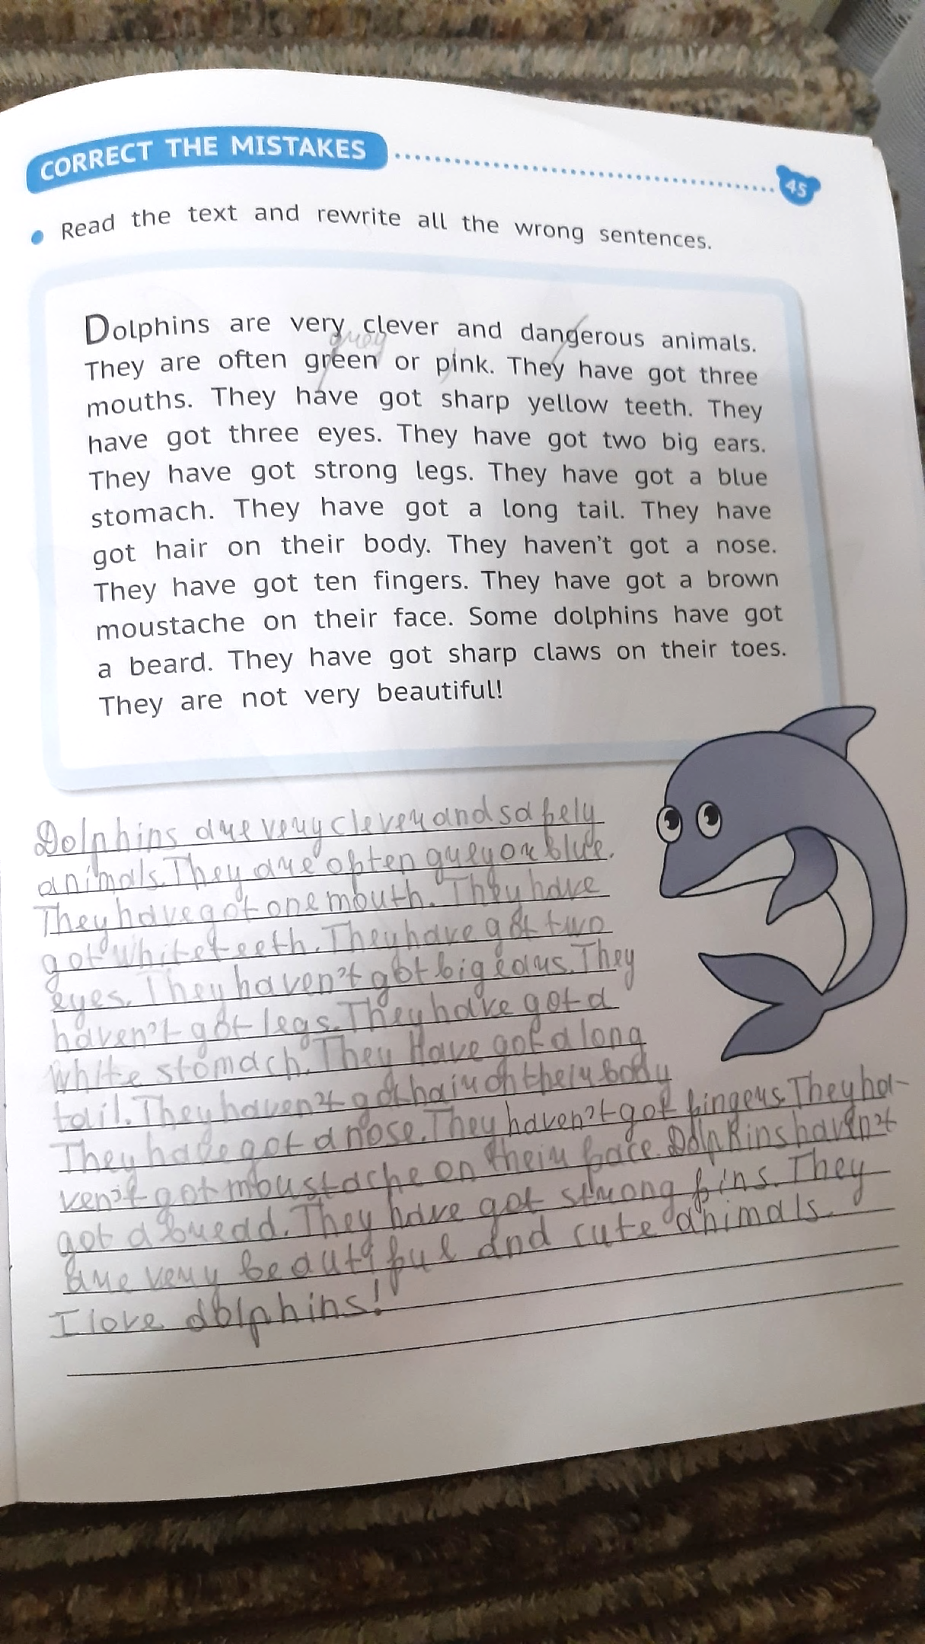 CORRECT THE MISTAKES
45
Read the text and rewrite all the wrong sentences.
Dolphins are very clever and dangerous animals.
grey
They are often green or pink. They have got three
mouths. They have got sharp yellow teeth. They
have got three eyes. They have got two big ears.
They have got strong legs. They have got a blue
stomach. They have got a long tail. They have
got hair on their body. They haven't got a nose.
They have got ten fingers. They have got a brown
moustache on their face. Some dolphins have got
a beard. They have got sharp claws on their toes.
They are not very beautiful!
Dolphins are very clever and safely
animals. They are often grey or blue.
They have got one mouth. They have
got white teeth. They have got two
eyes. They haven't got big ears. They
haven't got legs. They have got a
white stomach. They Have got a long
tail. They haven't got hair on their body
They have got a nose. They haven't got fingers. They ha-
ven't got moustache on their face. Dolphins haven't
got a bread. They have got strong fins. They
are very beautiful and cute animals.
I love dolphins!